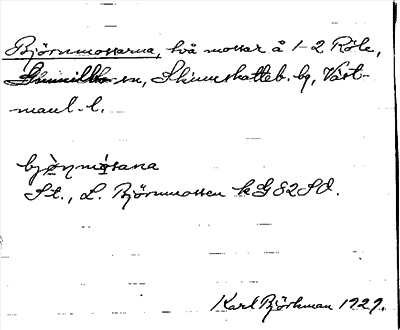 Björnmossarna, två mossar å 1-2 Röle,
sn, Skinnskatteb. bg, Väst-
manl. l.
bjö̱ṉmo̱sana
St., L. Björnmossen k G 82 SO.
Karl Björkman 1929.